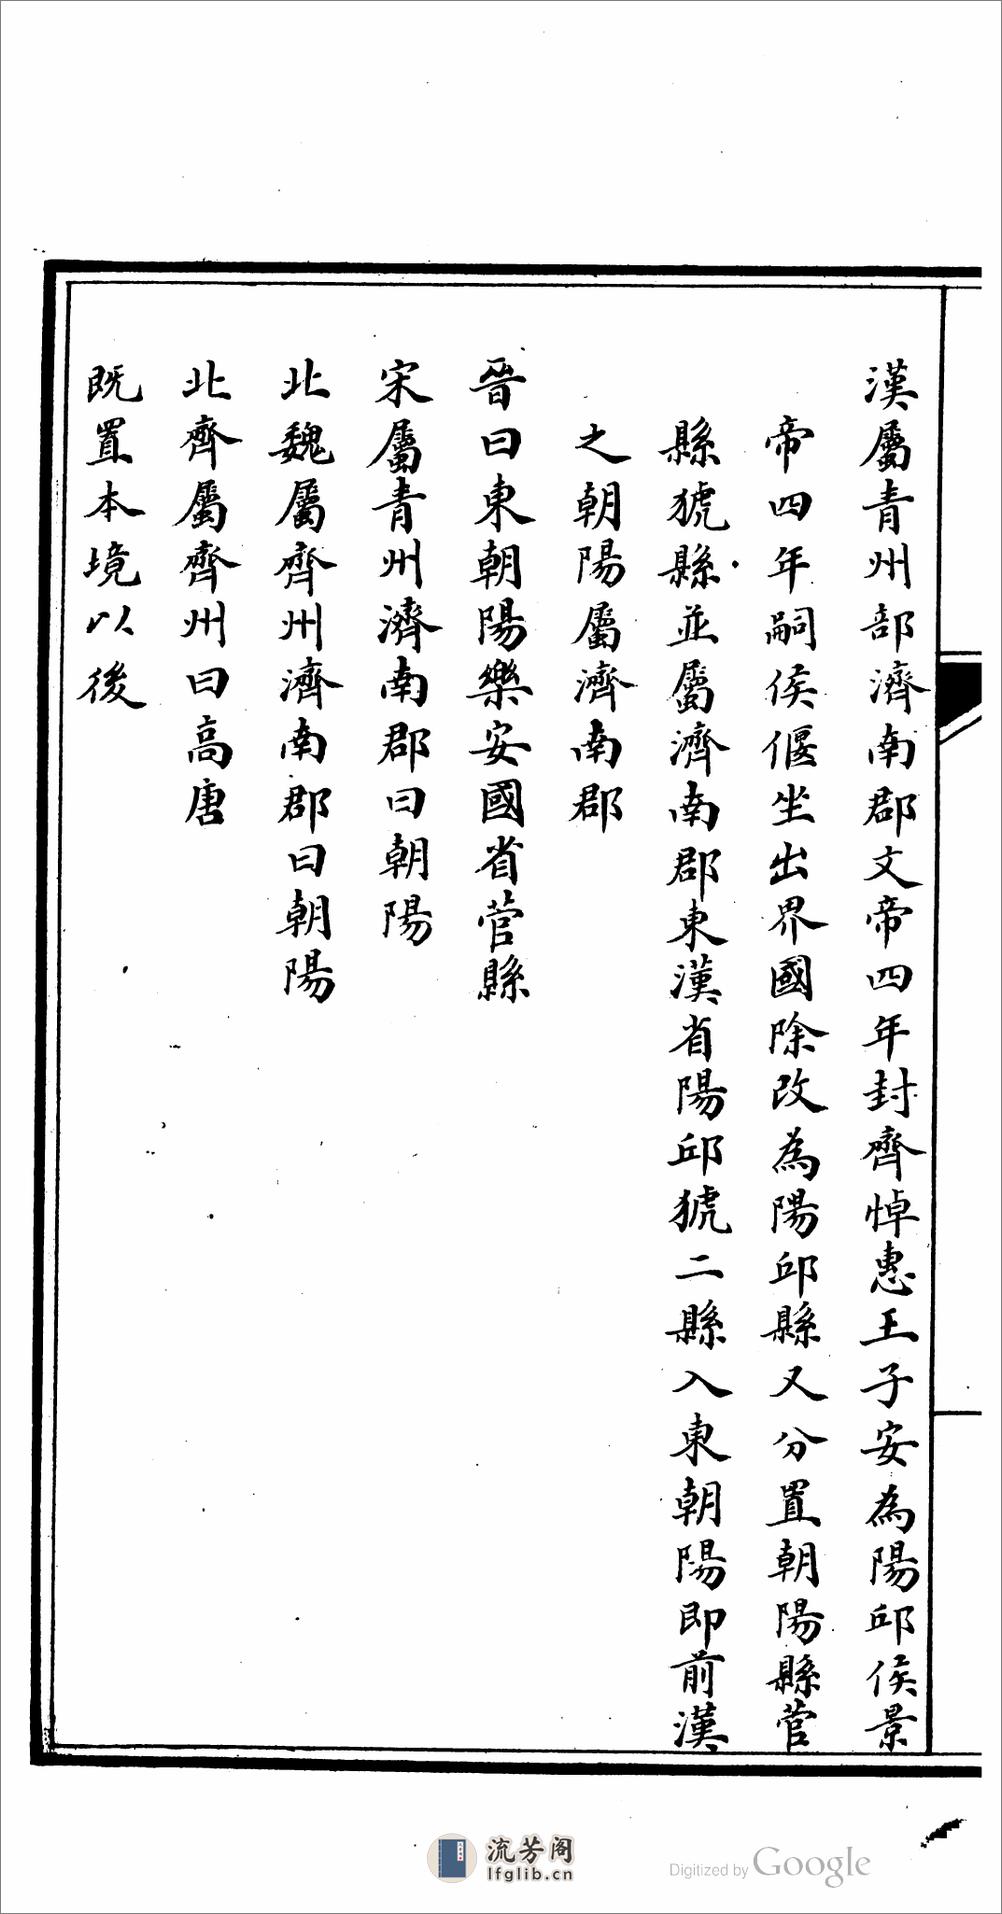 漢屬青州部濟南郡文帝四年封齊悼惠王子安為陽邱侯景
帝四年嗣侯偃坐出界國除改為陽邱縣又分置朝陽縣菅
縣猇縣並屬濟南郡東漢省陽邱猇二縣入東朝陽即前漢
之朝陽屬濟南郡
晉曰東朝陽樂安國省菅縣
宋屬青州濟南郡曰朝陽
北魏屬齊州濟南郡曰朝陽
北齊屬齊州曰高唐
既置本境以後
流芳阁
lfglib.cn
Digitized by Google